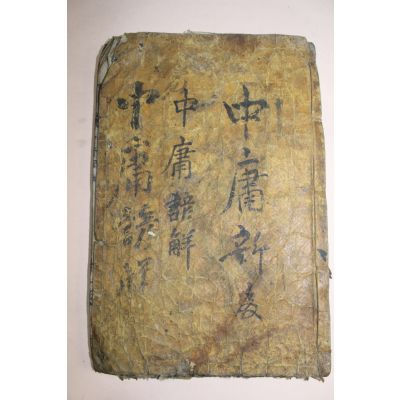 中庸
中庸諺解
中庸諺解